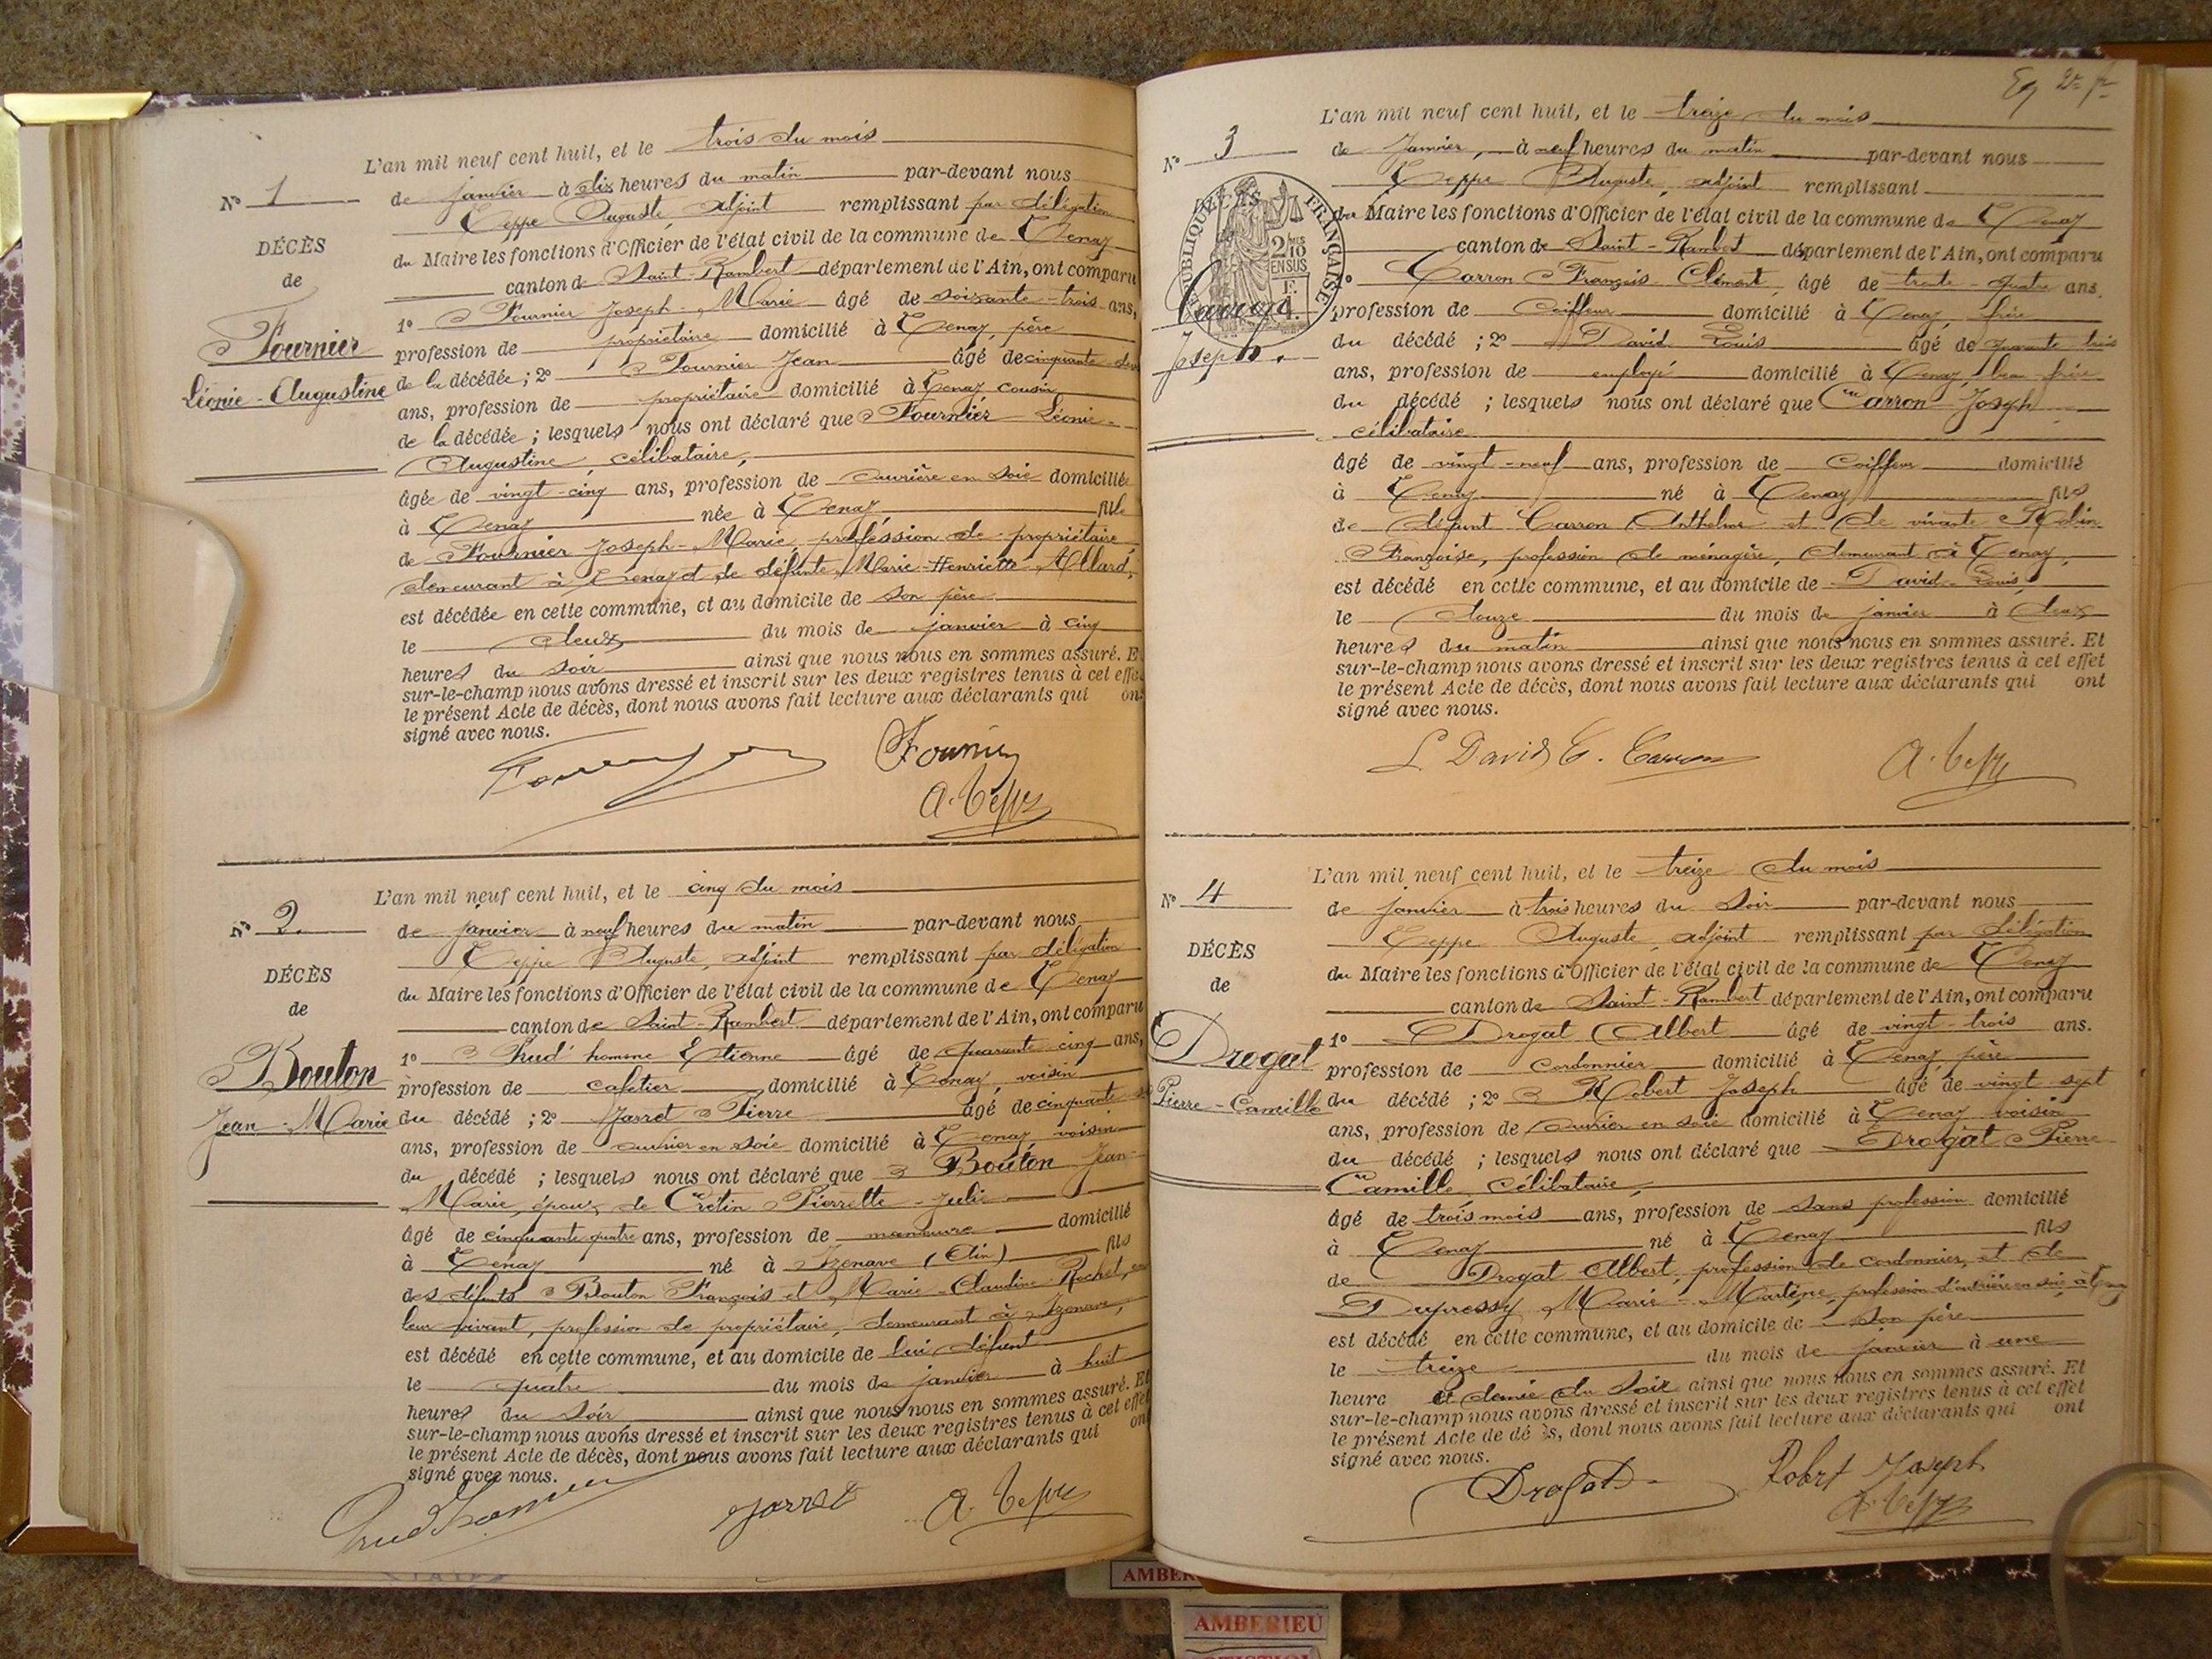 L'an mil neuf cent huit, et le trois du mois
Nº 1
de janvier à dix heures du matin par-devant nous
Teppe Auguste, adjoint remplissant par délégation
DÉCÈS
du Maire les fonctions d'Officier de l'état civil de la commune de Tenay
de
canton de Saint-Rambert département de l'Ain, ont comparu
1º Fournier Joseph-Marie âgé de soixante-trois ans,
Fournier
profession de propriétaire domicilié à Tenay, père
Léonie-Augustine
de la décédée ; 2º Fournier Jean âgé de cinquante
ans, profession de propriétaire domicilié à Tenay cousin
de la décédée ; lesquels nous ont déclaré que Fournier Léonie-
Augustine, célibataire,
âgée de vingt-cinq ans, profession de ouvrière en soie domiciliée
à Tenay née à Tenay fille
de Fournier Joseph-Marie, profession de propriétaire
demeurant à Tenay et de défunte Marie-Henriette Allard,
est décédée en cette commune, et au domicile de son père
le deux du mois de janvier à cinq
heures du soir ainsi que nous nous en sommes assuré. E
sur-le-champ nous avons dressé et inscrit sur les deux registres tenus à cet effe
le présent Acte de décès, dont nous avons fait lecture aux déclarants qui on
signé avec nous.
Fournier
A. Teppe
L'an mil neuf cent huit, et le cinq du mois
Nº 2
de janvier à neuf heures du matin par-devant nous
Teppe Auguste, adjoint remplissant par délégation
DÉCÈS
du Maire les fonctions d'Officier de l'état civil de la commune de Tenay
de
canton de Saint-Rambert département de l'Ain, ont comparu
1º Prud'homme Etienne âgé de quarante cinq ans,
Bouton
profession de cafetier domicilié à Tenay, voisin
Jean-Marie
du décédé ; 2º Jarret Pierre âgé de cinquante
ans, profession de ouvrier en soie domicilié à Tenay, voisin
du décédé ; lesquels nous ont déclaré que Bouton Jean-
Marie, époux de Crétin Pierrette-Julie
âgé de cinquante quatre ans, profession de manœuvre domicilié
à Tenay né à Izenave (Ain) fils
des défunts Bouton François et Marie-Claudine Rochet, en
leur vivant, profession de propriétaire, demeurant à Izenave,
est décédé en cette commune, et au domicile de lui défunt
le quatre du mois de janvier à huit
heures du soir ainsi que nous nous en sommes assuré. Et
sur-le-champ nous avons dressé et inscrit sur les deux registres tenus à cet effet
le présent Acte de décès, dont nous avons fait lecture aux déclarants qui ont
signé avec nous.
Prudhomme Jarret A. Teppe
L'an mil neuf cent huit, et le treize du mois
Nº 3
de Janvier, à neuf heures du matin par-devant nous
Teppe Auguste, adjoint remplissant
du Maire les fonctions d'Officier de l'état civil de la commune de Tenay
RÉPUBLIQUE FRANÇAISE
2/10 EN SUS
canton de Saint-Rambert département de l'Ain, ont comparu
1º Carron François-Clément, âgé de trente-quatre ans,
Carron
profession de Coiffeur domicilié à Tenay, frère
Joseph.
du décédé ; 2º David Louis âgé de quarante trois
ans, profession de employé domicilié à Tenay, beau-frère
du décédé ; lesquels nous ont déclaré que Carron Joseph
célibataire
âgé de vingt-neuf ans, profession de Coiffeur domicilié
à Tenay né à Tenay fils
de défunt Carron Anthelme et de vivante
Françoise, profession de ménagère, demeurant à Tenay,
est décédé en cette commune, et au domicile de David Louis,
le douze du mois de janvier à deux
heures du matin ainsi que nous nous en sommes assuré. Et
sur-le-champ nous avons dressé et inscrit sur les deux registres tenus à cet effet
le présent Acte de décès, dont nous avons fait lecture aux déclarants qui ont
signé avec nous.
L. David C. Carron A. Teppe
L'an mil neuf cent huit, et le treize du mois
Nº 4
de janvier à trois heures du soir par-devant nous
Teppe Auguste, adjoint remplissant par délégation
DÉCÈS
du Maire les fonctions d'Officier de l'état civil de la commune de Tenay
de
canton de Saint-Rambert département de l'Ain, ont comparu
1º Drogat Albert âgé de vingt-trois ans.
Drogat
profession de cordonnier domicilié à Tenay, père
Pierre-Camille
du décédé ; 2º Robert Joseph âgé de vingt sept
ans, profession de ouvrier en soie domicilié à Tenay voisin
du décédé ; lesquels nous ont déclaré que Drogat Pierre
Camille, célibataire,
âgé de trois mois ans, profession de sans profession domicilié
à Tenay né à Tenay fils
de Drogat Albert, profession de cordonnier, et de
Dupressy Marie-Martine, profession d'ouvrière en soie, à Tenay
est décédé en cette commune, et au domicile de son père
le treize du mois de janvier à une
heure et demie du soir ainsi que nous nous en sommes assuré. Et
sur-le-champ nous avons dressé et inscrit sur les deux registres tenus à cet effet
le présent Acte de dé ès, dont nous avons fait lecture aux déclarants qui ont
signé avec nous.
Drogat Robert Joseph
A. Teppe
AMBER
AMBERIEU